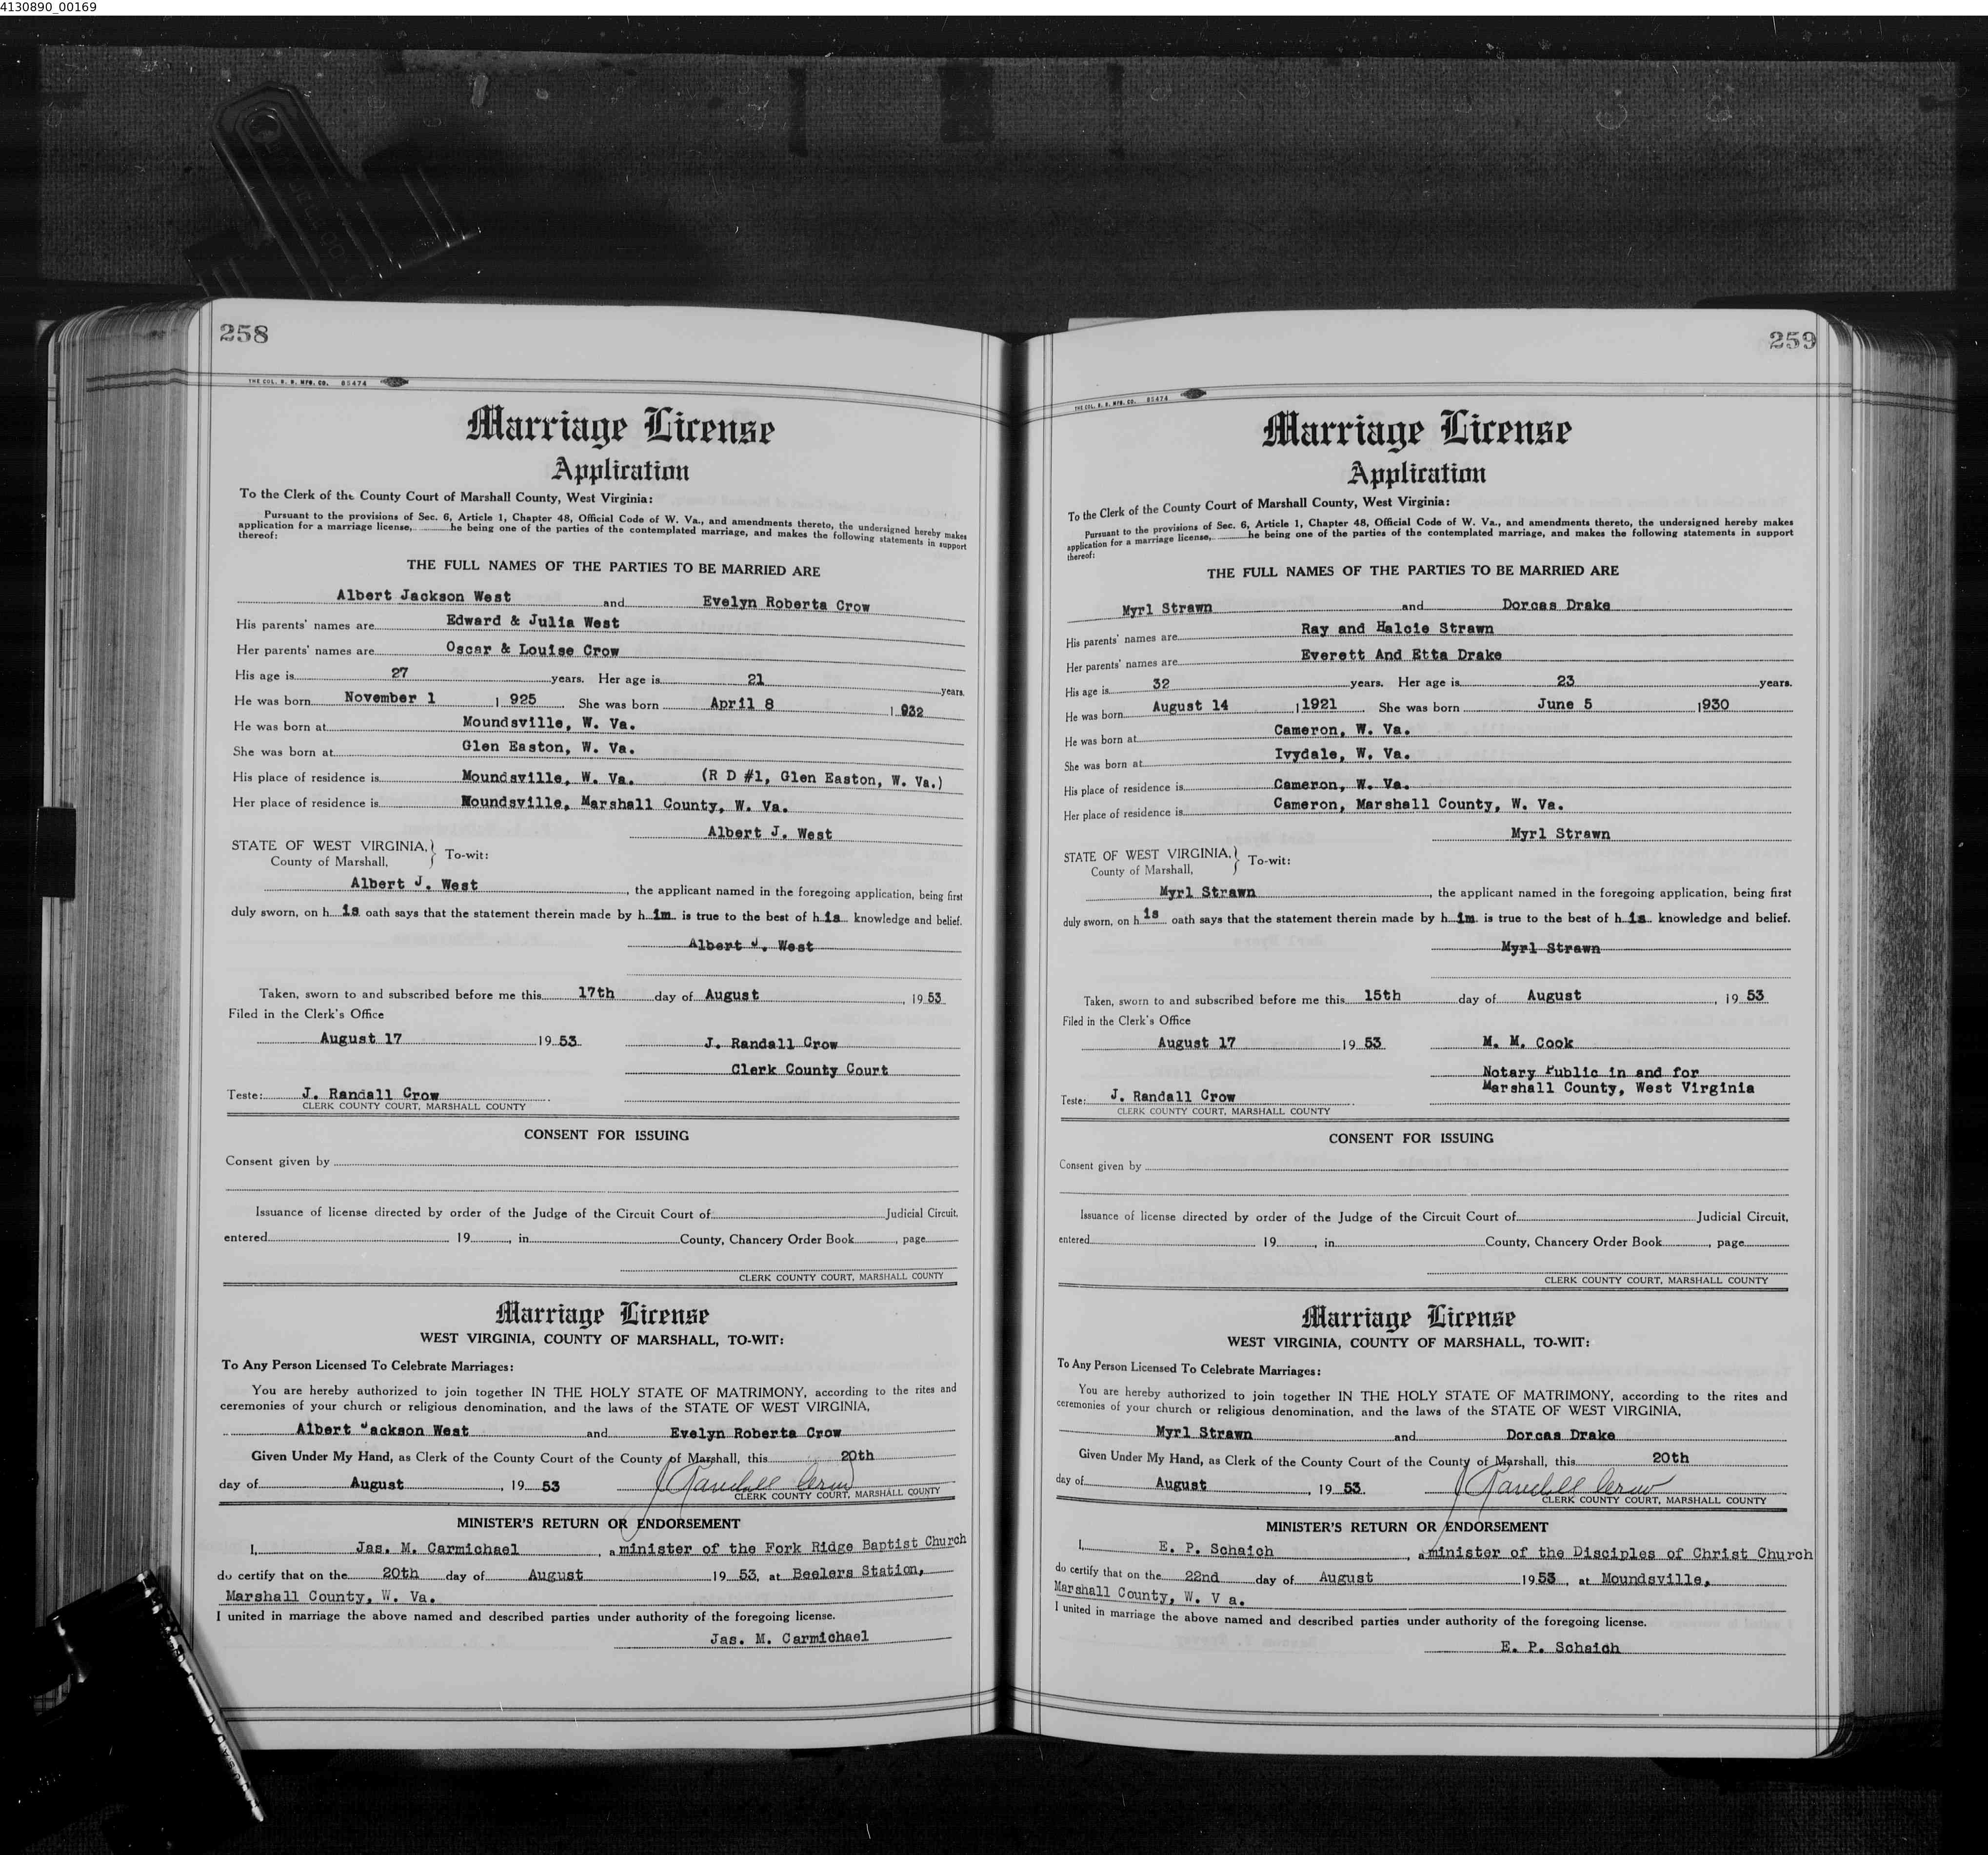 4130890_00169
258
THE COL. B. B. MFG. CO. 85474
Marriage License
Application
To the Clerk of the County Court of Marshall County, West Virginia:
Pursuant to the provisions of Sec. 6, Article 1, Chapter 48, Official Code of W. Va., and amendments thereto, the undersigned hereby makes
application for a marriage license, he being one of the parties of the contemplated marriage, and makes the following statements in support
thereof:
THE FULL NAMES OF THE PARTIES TO BE MARRIED ARE
Albert Jackson West and Evelyn Roberta Crow
His parents' names are Edward & Julia West
Her parents' names are Oscar & Louise Crow
His age is 27 years. Her age is 21 years.
He was born November 1 1925 She was born April 8 1932
He was born at Moundsville, W. Va.
She was born at Glen Easton, W. Va.
His place of residence is Moundsville, W. Va. (R D #1, Glen Easton, W. Va.)
Her place of residence is Moundsville, Marshall County, W. Va.
Albert J. West
STATE OF WEST VIRGINIA, } To-wit:
County of Marshall,
Albert J. West , the applicant named in the foregoing application, being first
duly sworn, on his oath says that the statement therein made by him is true to the best of his knowledge and belief.
Albert J. West
Taken, sworn to and subscribed before me this 17th day of August , 1953
Filed in the Clerk's Office
August 17 1953 J. Randall Crow
Clerk County Court
Teste: J. Randall Crow
CLERK COUNTY COURT, MARSHALL COUNTY
CONSENT FOR ISSUING
Consent given by
Issuance of license directed by order of the Judge of the Circuit Court of Judicial Circuit,
entered 19 , in County, Chancery Order Book , page
CLERK COUNTY COURT, MARSHALL COUNTY
Marriage License
WEST VIRGINIA, COUNTY OF MARSHALL, TO-WIT:
To Any Person Licensed To Celebrate Marriages:
You are hereby authorized to join together IN THE HOLY STATE OF MATRIMONY, according to the rites and
ceremonies of your church or religious denomination, and the laws of the STATE OF WEST VIRGINIA,
Albert Jackson West and Evelyn Roberta Crow
Given Under My Hand, as Clerk of the County Court of the County of Marshall, this 20th
day of August , 19 53 J Randall Crow
CLERK COUNTY COURT, MARSHALL COUNTY
MINISTER'S RETURN OR ENDORSEMENT
I, Jas. M. Carmichael , a minister of the Fork Ridge Baptist Church
do certify that on the 20th day of August 19 53, at Beelers Station,
Marshall County, W. Va.
I united in marriage the above named and described parties under authority of the foregoing license.
Jas. M. Carmichael
259
THE COL. B. B. MFG. CO. 85474
Marriage License
Application
To the Clerk of the County Court of Marshall County, West Virginia:
Pursuant to the provisions of Sec. 6, Article 1, Chapter 48, Official Code of W. Va., and amendments thereto, the undersigned hereby makes
application for a marriage license, he being one of the parties of the contemplated marriage, and makes the following statements in support
thereof:
THE FULL NAMES OF THE PARTIES TO BE MARRIED ARE
Myrl Strawn and Dorcas Drake
His parents' names are Ray and Halcie Strawn
Her parents' names are Everett And Etta Drake
His age is 32 years. Her age is 23 years.
He was born August 14 1921 She was born June 5 1930
He was born at Cameron, W. Va.
She was born at Ivydale, W. Va.
His place of residence is Cameron, W. Va.
Her place of residence is Cameron, Marshall County, W. Va.
Myrl Strawn
STATE OF WEST VIRGINIA, } To-wit:
County of Marshall,
Myrl Strawn , the applicant named in the foregoing application, being first
duly sworn, on his oath says that the statement therein made by him is true to the best of his knowledge and belief.
Myrl Strawn
Taken, sworn to and subscribed before me this 15th day of August , 19 53
Filed in the Clerk's Office
August 17 19 53 M. M. Cook
Notary Public in and for
Marshall County, West Virginia
Teste: J. Randall Crow
CLERK COUNTY COURT, MARSHALL COUNTY
CONSENT FOR ISSUING
Consent given by
Issuance of license directed by order of the Judge of the Circuit Court of Judicial Circuit,
entered 19 , in County, Chancery Order Book , page
CLERK COUNTY COURT, MARSHALL COUNTY
Marriage License
WEST VIRGINIA, COUNTY OF MARSHALL, TO-WIT:
To Any Person Licensed To Celebrate Marriages:
You are hereby authorized to join together IN THE HOLY STATE OF MATRIMONY, according to the rites and
ceremonies of your church or religious denomination, and the laws of the STATE OF WEST VIRGINIA,
Myrl Strawn and Dorcas Drake
Given Under My Hand, as Clerk of the County Court of the County of Marshall, this 20th
day of August , 19 53. J Randall Crow
CLERK COUNTY COURT, MARSHALL COUNTY
MINISTER'S RETURN OR ENDORSEMENT
I, E. P. Schaich , a minister of the Disciples of Christ Church
do certify that on the 22nd day of August 1953 , at Moundsville,
Marshall County, W. V a.
I united in marriage the above named and described parties under authority of the foregoing license.
E. P. Schaich